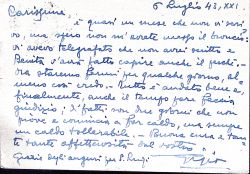 6 Luglio 43, XXI
Carissime,
è quasi un mese che non vi scri-
vo, ma spero non m'avrete messo il broncio:
vi avevo telegrafato che non avrei scritto e
Benita v'avrà fatto capire anche il perché.
Ora staremo fermi per qualche giorno, al-
meno così credo. Tutto è andato bene e,
finalmente, anche il tempo fare faccia
giudizio; difatti son due giorni che non
piove e comincia a far caldo, ma sempre
un caldo tollerabile. Buona cura e tan-
te tante affettuosità dal vostro
Grazie degli auguri per S. Luigi.